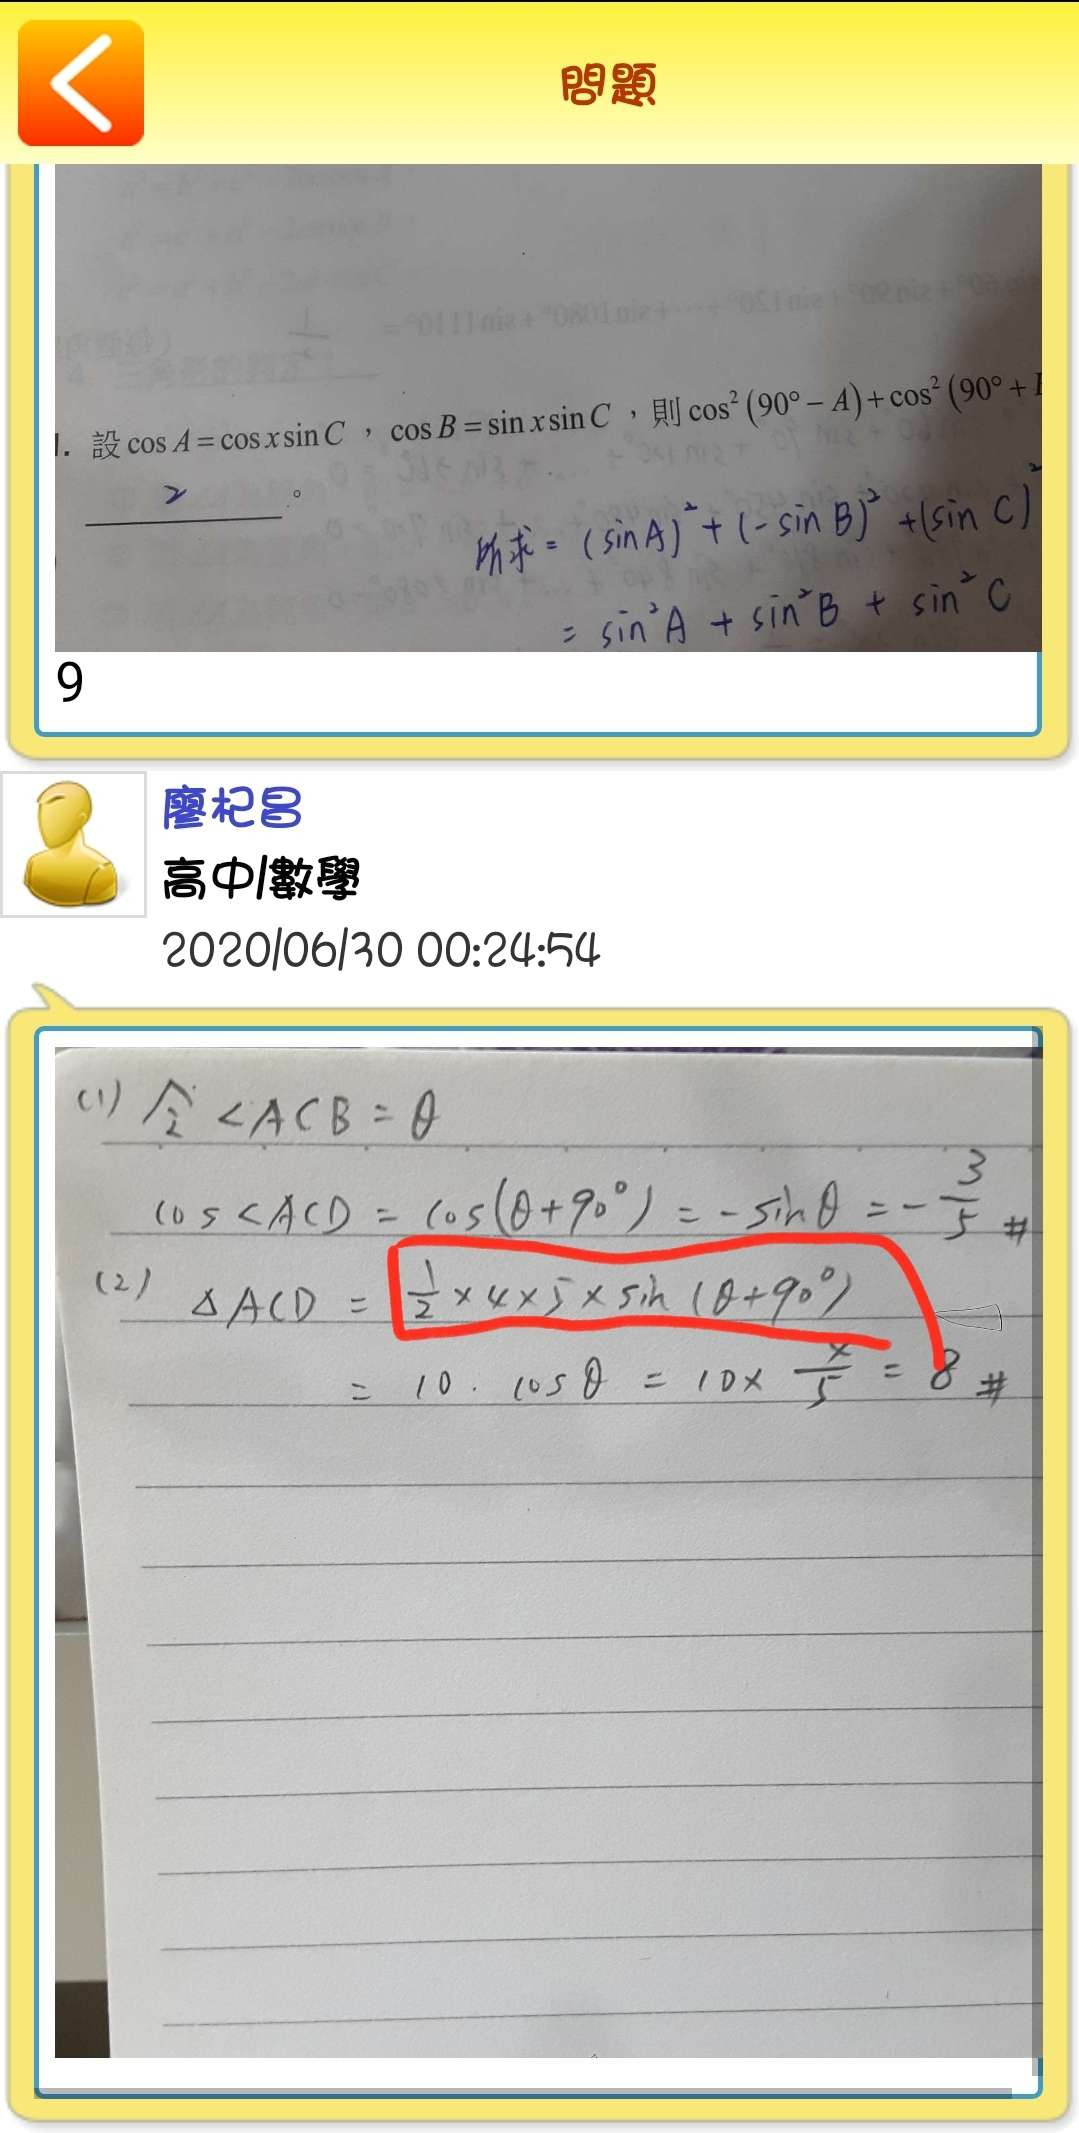 問題
1. 設 cos A = cos x sin C ， cos B = sin x sin C ，則 cos² (90° − A) + cos² (90° +
2 。
所求 = (sin A)² + (-sin B)² + (sin C)²
= sin²A + sin²B + sin²C
9
廖杞昌
高中/數學
2020/06/30 00:24:54
(1) 令 <ACB = θ
cos <ACD = cos(θ+90°) = -sinθ = -3/5 #
(2) △ACD = 1/2 × 4 × 5 × sin (θ+90°)
= 10 · cosθ = 10 × 4/5 = 8 #